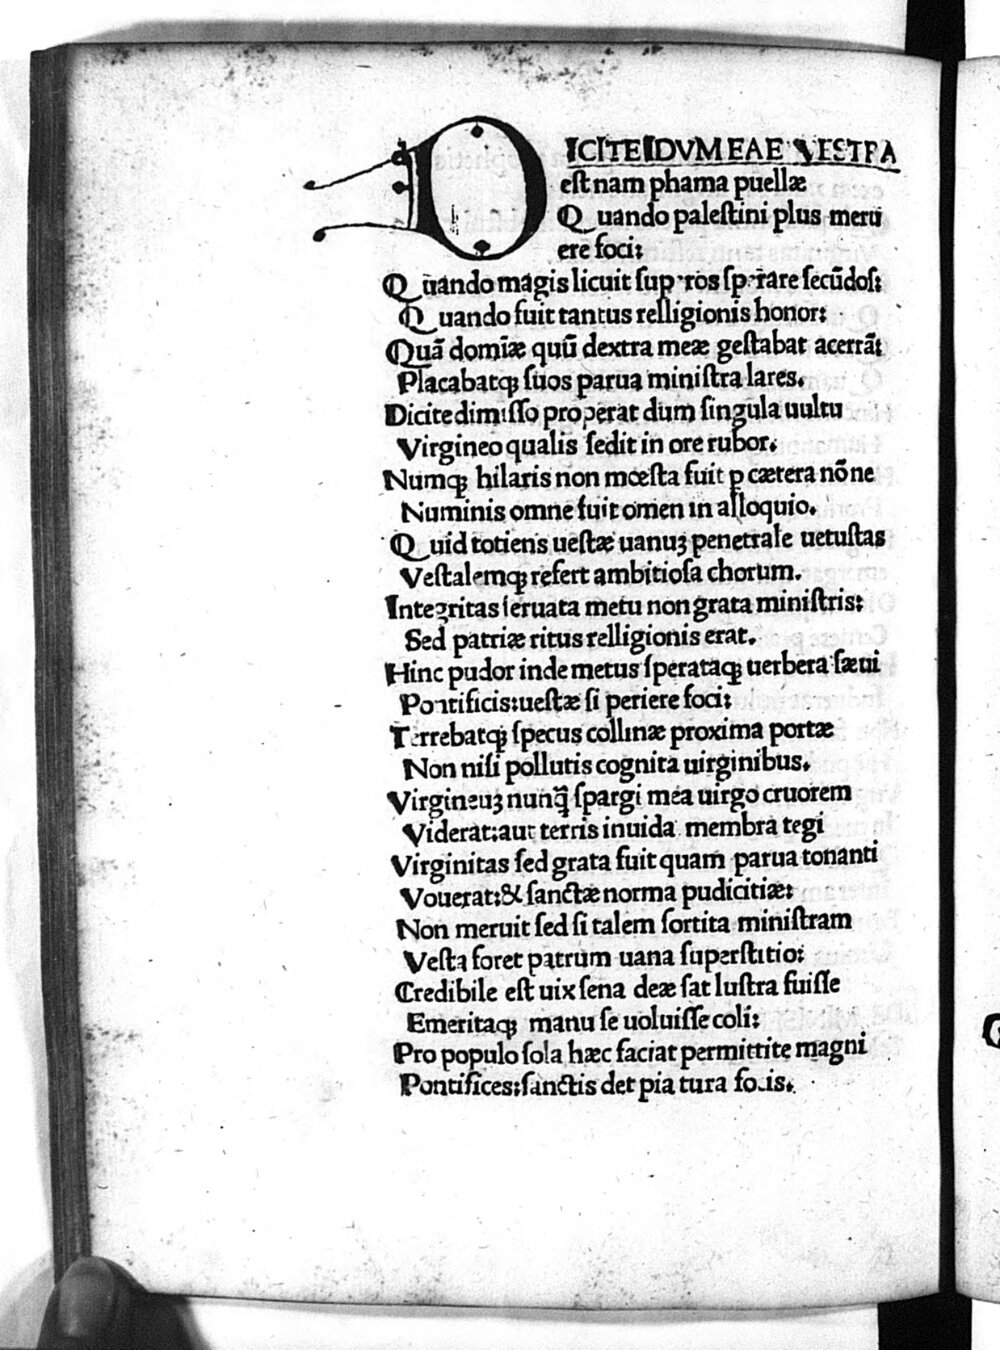 DICITE IDVMEAE VESTRA
est nam phama puellæ
Quando palestini plus meru
ere foci:
Quando magis licuit superos sperare secūdos:
Quando fuit tantus relligionis honor:
Quā domīæ quū dextra meæ gestabat acerrā:
Placabatqꝫ suos parua ministra lares.
Dicite dimisso properat dum singula uultu
Virgineo qualis sedit in ore rubor.
Numqꝫ hilaris non mœsta fuit ꝑ cætera nōne
Numinis omne fuit omen in alloquio.
Quid totiens uestæ uanuꝫ penetrale uetustas
Vestalemqꝫ refert ambitiosa chorum.
Integritas seruata metu non grata ministris:
Sed patriæ ritus relligionis erat.
Hinc pudor inde metus sperataqꝫ uerbera sæui
Pontificis: uestæ si periere foci:
Terrebatqꝫ specus collinæ proxima portæ
Non nisi pollutis cognita uirginibus.
Virgineuꝫ nunq̄ spargi mea uirgo cruorem
Viderat: aut terris inuida membra tegi
Virginitas sed grata fuit quam parua tonanti
Vouerat: & sanctæ norma pudicitiæ:
Non meruit sed si talem sortita ministram
Vesta foret patrum uana superstitio:
Credibile est uix sena deæ sat lustra fuisse
Emeritaqꝫ manu se uoluisse coli:
Pro populo sola hæc faciat permittite magni
Pontifices: sanctis det pia tura focis.